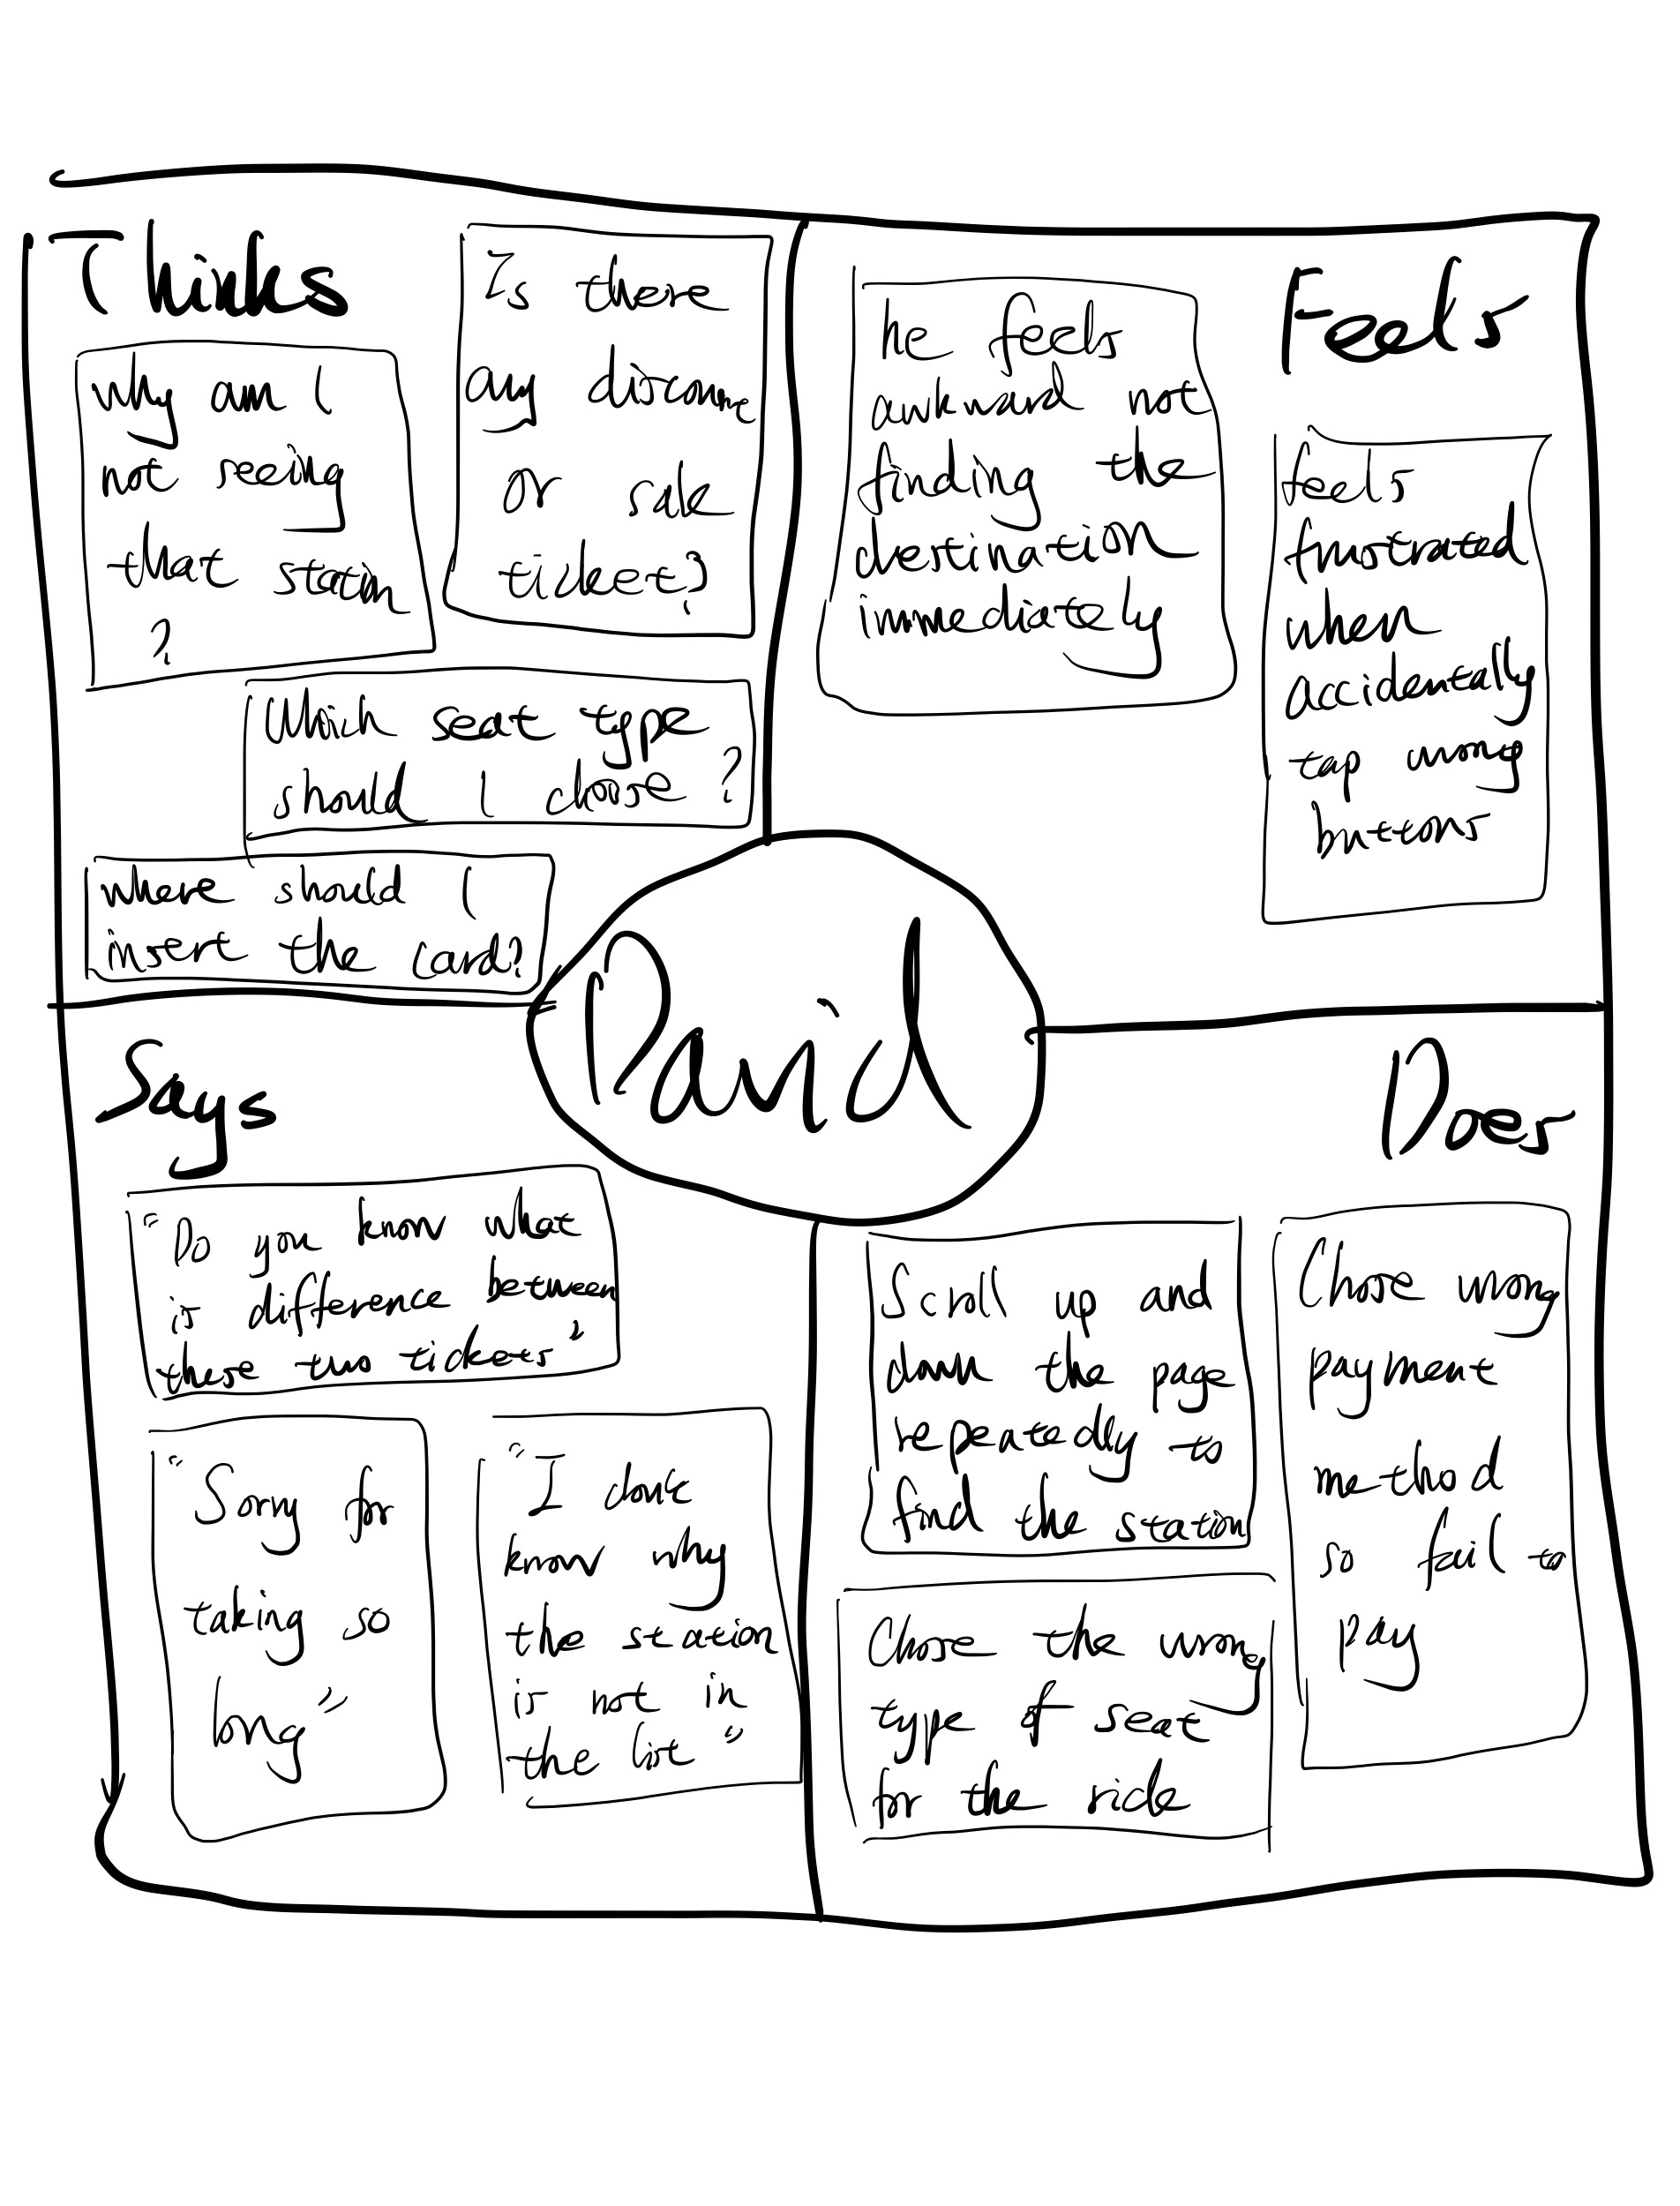 Thinks
why am I
not seeing
that station
?
Is there
any discount
or sale
ticket?
Which seat type
should I choose ?
where should I
insert the card?
Feels
he feels
awkward not
finding the
destination
immediately
feels
frustrated
when
accidentally
tap wrong
buttons
David
Says
"Do you know what
is difference between
these two tickets"
"Sorry for
taking so
long"
"I don't
know why
the station
is not in
the list"
Does
Scroll up and
down the page
repeatedly to
find the station
Chose wrong
payment
method
so fail to
pay
Chose the wrong
type of seat
for the ride